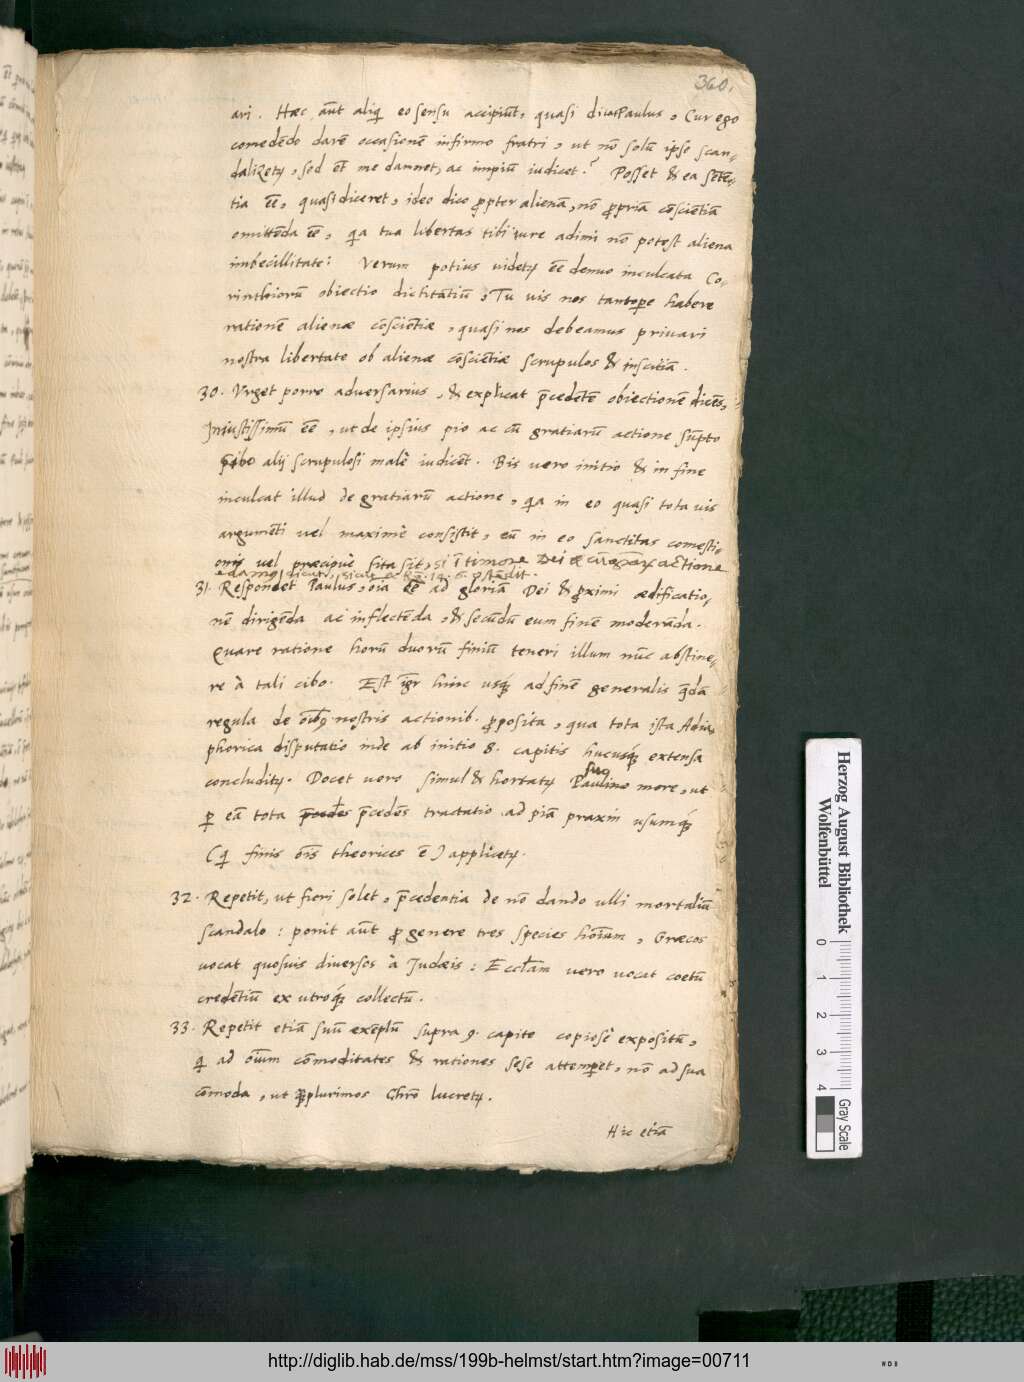 360.
ari. Haec aūt aliq̄ eo sensu accipiūt, quasi dicat Paulus, Cur ego
comedēdo darē occasionē infirmo fratri, ut nō solū ipse scan-
dalizetꝝ, sed et̄ me damnet, ac impiū iudicet? Posset & ea sētē-
tia ēē, quasi diceret, ideo dico ꝓpter alienā, nō ꝓpriā cōsciētiā
omittēda ēē, q̄a tua libertas tibi iure adimi nō potest aliena
imbecillitate: Verum potius uidetꝝ ēē denuo inculcata Co-
rinthiorū obiectio dictitātiū, Tu uis nos tantoꝑe habere
rationē alienae cōsciētiae, quasi nos debeamus priuari
nostra libertate ob alienae cōsciētiae scrupulos & inscitiā.
30. Vrget porro aduersarius, & explicat p̄cedētē obiectionē dicēs,
Iniustissimū ēē, ut de ipsius pio ac cū gratiarū actione sūpto
cibo alij scrupulosi malè iudicēt. Bis uero initio & in fine
inculcat illud de gratiarū actione, q̄a in eo quasi tota uis
argumēti uel maximè consistit, cū in eo sanctitas comesti-
onis uel praecipuè sita sit, si ī timore Dei & cū gr̄arꝝ actione
31. Respondet Paulus, oīa ēē ad gloriā Dei & ꝓximi aedificatio-
nē dirigēda ac inflectēda, & secūdū eum finē moderāda.
Quare ratione horū duorū finiū teneri illum nūc abstine-
re à tali cibo. Est igr̄ hinc usq; ad finē generalis q̄dā
regula de oībꝫ nostris actionib. ꝓposita, qua tota ista Adia-
phorica disputatio inde ab initio 8. capitis hucusq; extensa
concluditꝝ. Docet uero simul & hortatꝝ suo
Paulino more, ut
ꝑ eā tota p̄cedēs tractatio ad piā praxin usumq;
(q̄ finis oīs theorices ē) applicetꝝ.
32. Repetit, ut fieri solet, p̄cedentia de nō dando ulli mortaliū
scandalo: ponit aūt ꝓ genere tres species hoīum, Graecos
uocat quosuis diuersos à Iudaeis: Eccl̄am uero uocat coetū
credētiū ex utroq; collectū.
33. Repetit etiā suū exēplū supra 9. capite copiosè expositū,
q̄ ad oīum cōmoditates & rationes sese attemꝑet, nō ad sua
cōmoda, ut plurimos Chr̄o lucretꝝ.
Hic etiā
Herzog August Bibliothek
Wolfenbüttel
0 1 2 3 4
Gray Scale
http://diglib.hab.de/mss/199b-helmst/start.htm?image=00711